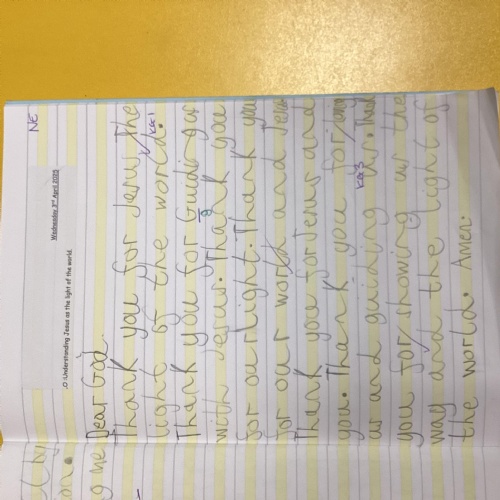 NE
Wednesday 3rd April 2025
.O :Understanding Jesus as the light of the world.
Dear God.
Thank you for Jesus, the
light of the world.
KQ1
Thank you for Guiding our
with Jesus. Thank you
for our light. Thank you
for our world and Jesus
Thank you for Jesus and
you. Thank you for
us and guiding us. Thank
KQ3
you for showing us the
way and the light of
the world. Amen.